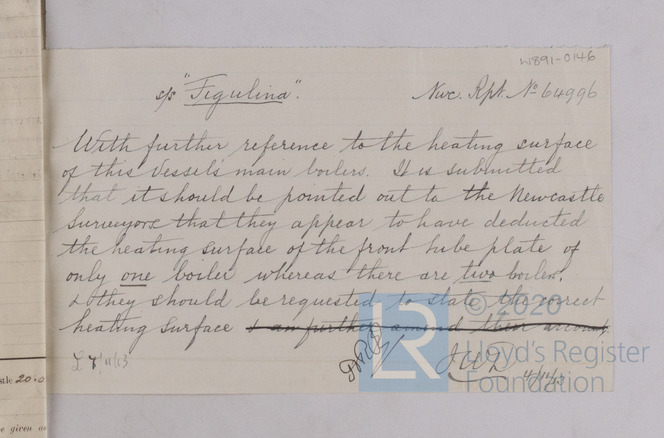 W891-0146
s/s "Figulina".
Nwc. Rpt. No 64996
With further reference to the heating surface
of this Vessel's main boilers. It is submitted
that it should be pointed out to the Newcastle
Surveyors that they appear to have deducted
the heating surface of the front tube plate of
only one boiler whereas there are two boilers,
& they should be requested to state the correct
heating surface & am further amend their
© 2020
Lloyd's Register
Foundation
LR
JWD
11/11/13
stle 20.0
e given as